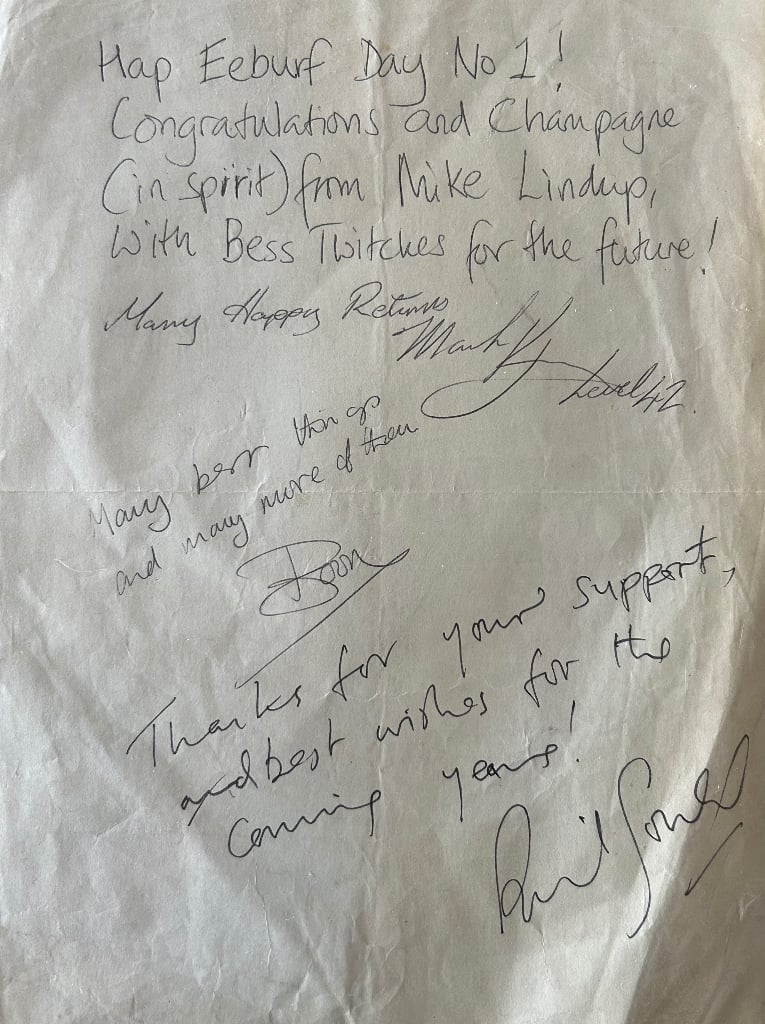 Hap Eeburf Day No 1!
Congratulations and Champagne
(in spirit) from Mike Lindup,
With Bess Twitches for the future!
Many Happy Returns
Mark Level 42.
Many best things
and many more of them
Boon
Thanks for your support,
and best wishes for the
coming years!